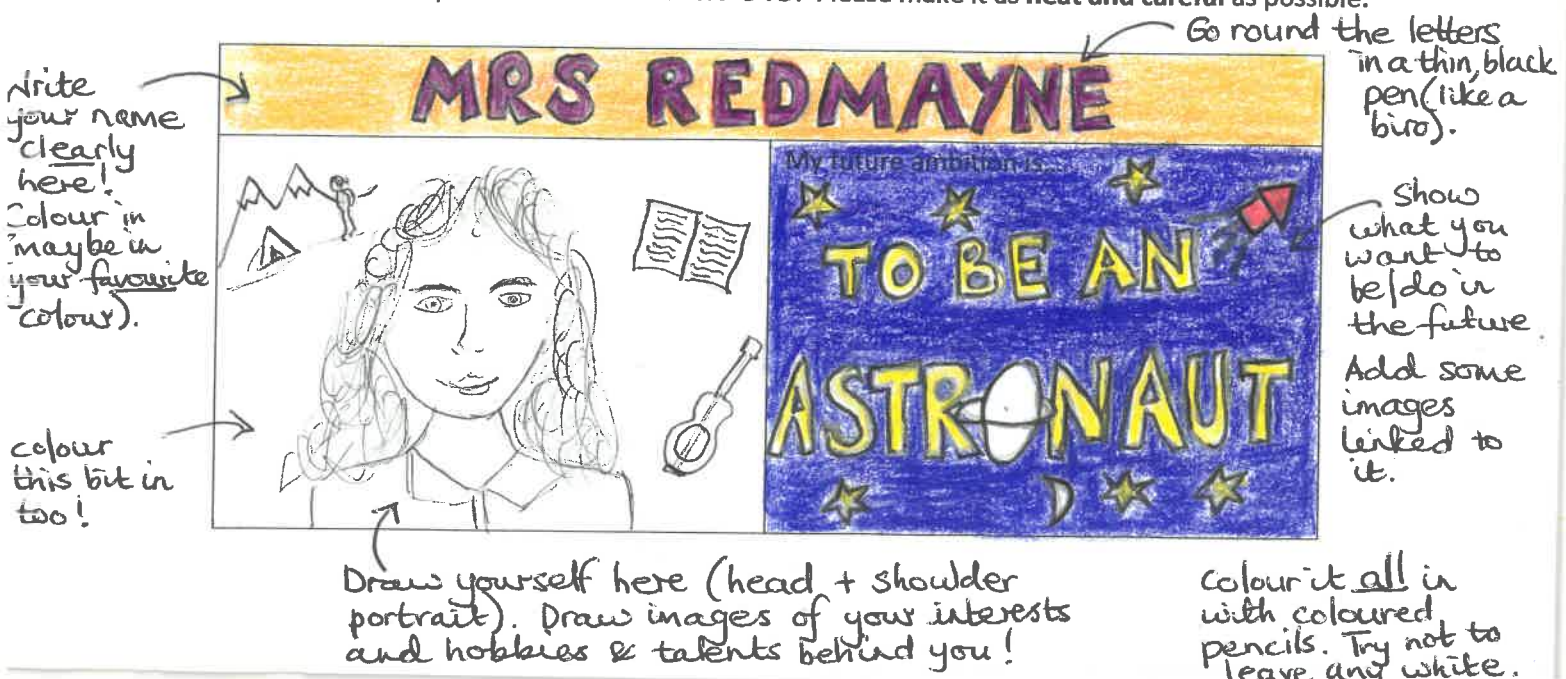 Please make it as neat and careful as possible.
Go round the letters
in a thin, black
pen (like a
biro).
Write
your name
clearly
here!
Colour in
maybe in
your favourite
colour).
MRS REDMAYNE
My future ambition is...
TO BE AN
ASTRONAUT
Show
what you
want to
be/do in
the future.
Add some
images
linked to
it.
colour
this bit in
too!
Draw yourself here (head + shoulder
portrait). Draw images of your interests
and hobbies & talents behind you!
Colour it all in
with coloured
pencils. Try not to
leave any white.